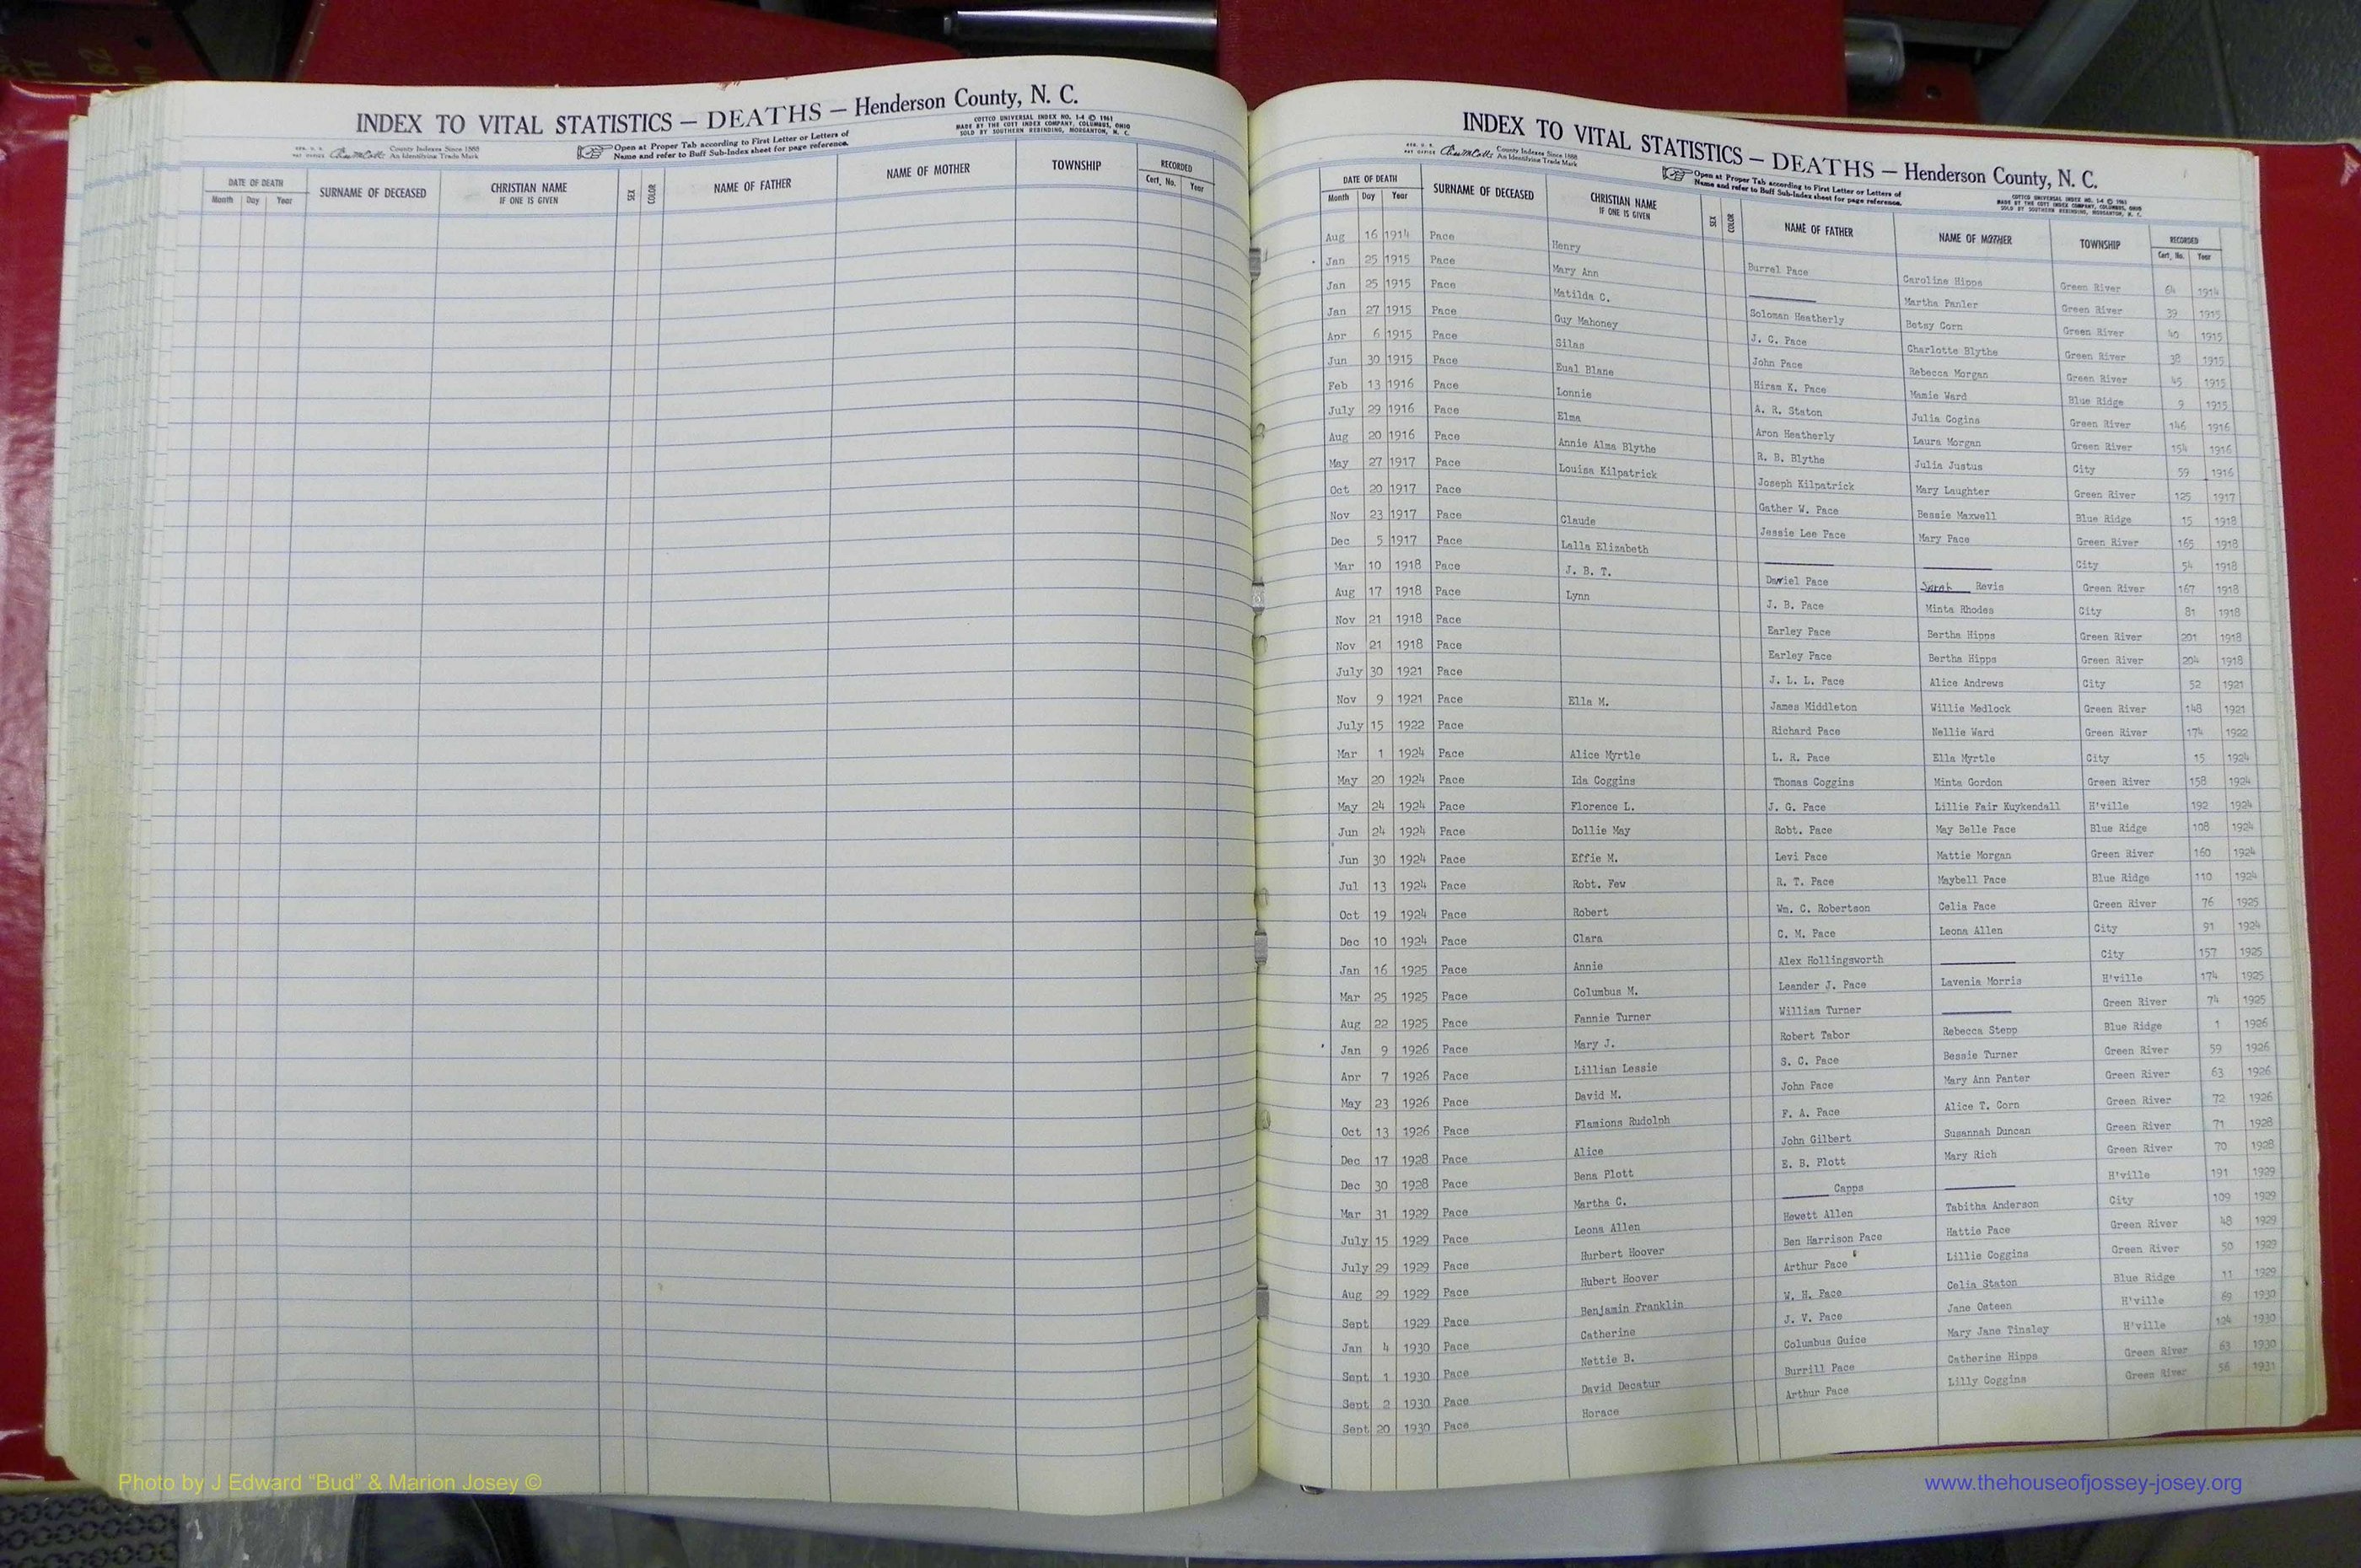 INDEX TO VITAL STATISTICS — DEATHS — Henderson County, N. C.
County Indexes Since 1888
An Identifying Trade Mark
Open at Proper Tab according to First Letter or Letters of
Name and refer to Buff Sub-Index sheet for page reference.
COTTCO UNIVERSAL INDEX NO. 1-4 © 1961
MADE BY THE COTT INDEX COMPANY, COLUMBUS, OHIO
SOLD BY SOUTHERN REBINDING, MORGANTON, N. C.
DATE OF DEATH SURNAME OF DECEASED CHRISTIAN NAME SEX COLOR NAME OF FATHER NAME OF MOTHER TOWNSHIP RECORDED
Month Day Year IF ONE IS GIVEN Cert. No. Year
INDEX TO VITAL STATISTICS — DEATHS — Henderson County, N. C.
County Indexes Since 1888
An Identifying Trade Mark
Open at Proper Tab according to First Letter or Letters of
Name and refer to Buff Sub-Index sheet for page reference.
COTTCO UNIVERSAL INDEX NO. 1-4 © 1961
MADE BY THE COTT INDEX COMPANY, COLUMBUS, OHIO
SOLD BY SOUTHERN REBINDING, MORGANTON, N. C.
DATE OF DEATH SURNAME OF DECEASED CHRISTIAN NAME SEX COLOR NAME OF FATHER NAME OF MOTHER TOWNSHIP RECORDED
Month Day Year IF ONE IS GIVEN Cert. No. Year
Aug 16 1914 Pace Henry Burrel Pace Caroline Hipps Green River 64 1914
Jan 25 1915 Pace Mary Ann Martha Panler Green River 39 1915
Jan 25 1915 Pace Matilda C. Soloman Heatherly Betsy Corn Green River 40 1915
Jan 27 1915 Pace Guy Mahoney J. G. Pace Charlotte Blythe Green River 38 1915
Apr 6 1915 Pace Silas John Pace Rebecca Morgan Green River 45 1915
Jun 30 1915 Pace Eual Blane Hiram K. Pace Mamie Ward Blue Ridge 9 1915
Feb 13 1916 Pace Lonnie A. R. Staton Julia Cogins Green River 146 1916
July 29 1916 Pace Elma Aron Heatherly Laura Morgan Green River 154 1916
Aug 20 1916 Pace Annie Alma Blythe R. B. Blythe Julia Justus City 59 1916
May 27 1917 Pace Louisa Kilpatrick Joseph Kilpatrick Mary Laughter Green River 125 1917
Oct 20 1917 Pace Gather W. Pace Bessie Maxwell Blue Ridge 15 1918
Nov 23 1917 Pace Claude Jessie Lee Pace Mary Pace Green River 165 1918
Dec 5 1917 Pace Lalla Elizabeth City 54 1918
Mar 10 1918 Pace J. B. T. Daniel Pace Sarah Revis Green River 167 1918
Aug 17 1918 Pace Lynn J. B. Pace Minta Rhodes City 81 1918
Nov 21 1918 Pace Earley Pace Bertha Hipps Green River 201 1918
Nov 21 1918 Pace Earley Pace Bertha Hipps Green River 204 1918
July 30 1921 Pace J. L. L. Pace Alice Andrews City 52 1921
Nov 9 1921 Pace Ella M. James Middleton Willie Medlock Green River 148 1921
July 15 1922 Pace Richard Pace Nellie Ward Green River 174 1922
Mar 1 1924 Pace Alice Myrtle L. R. Pace Ella Myrtle City 15 1924
May 20 1924 Pace Ida Coggins Thomas Coggins Minta Gordon Green River 158 1924
May 24 1924 Pace Florence L. J. G. Pace Lillie Fair Kuykendall H'ville 192 1924
Jun 24 1924 Pace Dollie May Robt. Pace May Belle Pace Blue Ridge 108 1924
Jun 30 1924 Pace Effie M. Levi Pace Mattie Morgan Green River 160 1924
Jul 13 1924 Pace Robt. Few R. T. Pace Maybell Pace Blue Ridge 110 1924
Oct 19 1924 Pace Robert Wm. C. Robertson Celia Pace Green River 76 1925
Dec 10 1924 Pace Clara C. M. Pace Leona Allen City 91 1924
Jan 16 1925 Pace Annie Alex Hollingsworth City 157 1925
Mar 25 1925 Pace Columbus M. Leander J. Pace Lavenia Morris H'ville 174 1925
Aug 22 1925 Pace Fannie Turner William Turner Green River 74 1925
Jan 9 1926 Pace Mary J. Robert Tabor Rebecca Stepp Blue Ridge 1 1926
Apr 7 1926 Pace Lillian Lessie S. C. Pace Bessie Turner Green River 59 1926
May 23 1926 Pace David M. John Pace Mary Ann Panter Green River 63 1926
Oct 13 1926 Pace Flamions Rudolph F. A. Pace Alice T. Corn Green River 72 1926
Dec 17 1928 Pace Alice John Gilbert Susannah Duncan Green River 71 1928
Dec 30 1928 Pace Bena Plott E. B. Plott Mary Rich Green River 70 1928
Mar 31 1929 Pace Martha C. Capps H'ville 191 1929
July 15 1929 Pace Leona Allen Hewett Allen Tabitha Anderson City 109 1929
July 29 1929 Pace Hurbert Hoover Ben Harrison Pace Hattie Pace Green River 48 1929
Aug 29 1929 Pace Hubert Hoover Arthur Pace Lillie Coggins Green River 50 1929
Sept 1929 Pace Benjamin Franklin W. H. Pace Celia Staton Blue Ridge 11 1929
Jan 4 1930 Pace Catherine J. V. Pace Jane Osteen H'ville 69 1930
Sept 1 1930 Pace Nettie B. Columbus Guice Mary Jane Tinsley H'ville 124 1930
Sept 2 1930 Pace David Decatur Burrill Pace Catherine Hipps Green River 63 1930
Sept 20 1930 Pace Horace Arthur Pace Lilly Coggins Green River 56 1931
Photo by J Edward “Bud” & Marion Josey ©
www.thehouseofjossey-josey.org